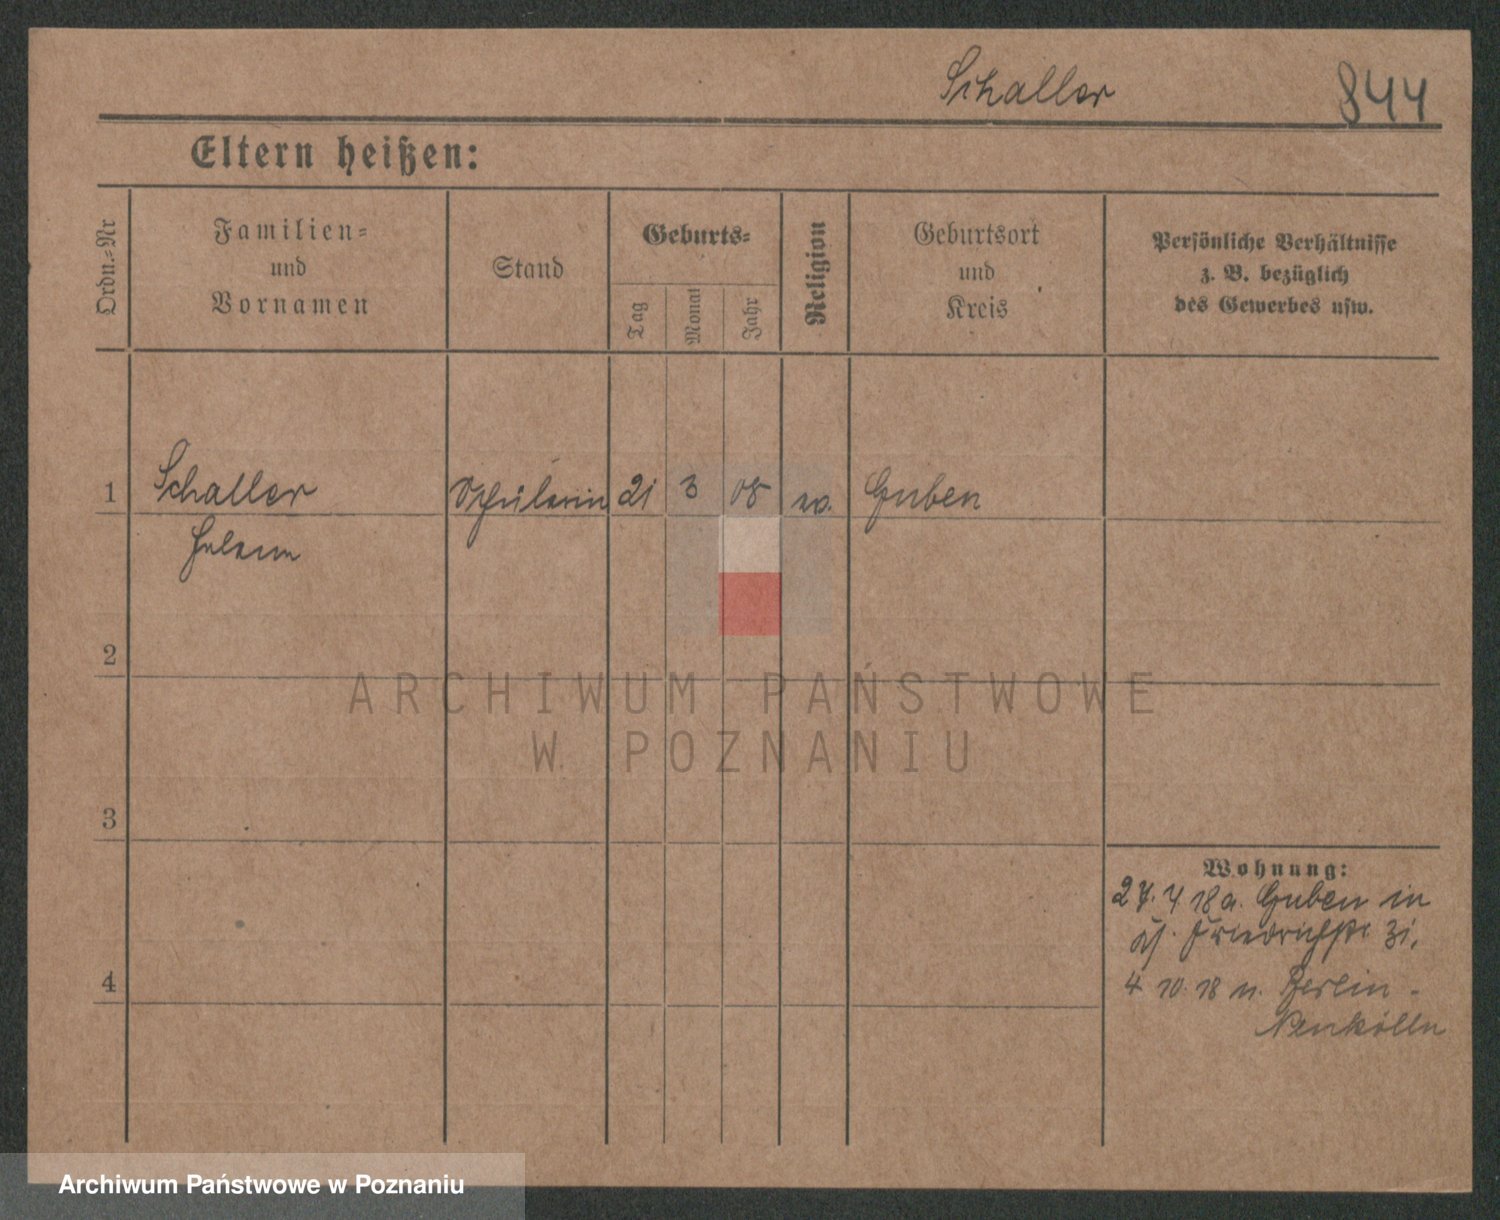 Schaller 844
Eltern heißen:
Ordn.-Nr
Familien-
und
Vornamen
Stand
Geburts-
Tag
Monat
Jahr
Religion
Geburtsort
und
Kreis
Persönliche Verhältnisse
z. B. bezüglich
des Gewerbes usw.
1 Schaller Schülerin 21 3 08 ev. Guben
Helene
2
3
4
Wohnung:
27. 4 18 a. Guben in
Friedrichstr 31.
4 10. 18 n. Berlin-
Neukölln
ARCHIWUM PAŃSTWOWE
W POZNANIU
Archiwum Państwowe w Poznaniu